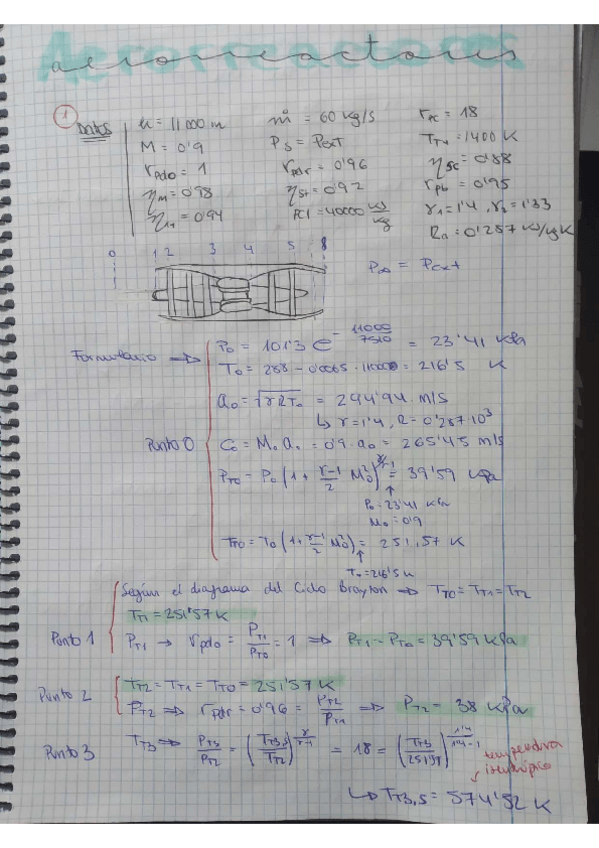 aerorreactores
① Datos
h = 11000 m
ṁ = 60 kg/s
r_pc = 18
M = 0'9
P_s = P_ext
T_T4 = 1400 K
r_pdo = 1
r_pdr = 0'96
η_sc = 0'88
η_m = 0'98
η_st = 0'92
r_pb = 0'95
PCI = 40000 kJ/kg
γ_1 = 1'4, γ_2 = 1'33
R_a = 0'287 kJ/kg K
0 1 2 3 4 5 8
P_∞ = P_ext
Formulario ⇒ P_0 = 101'3 e^(-11000/7510) = 23'41 kPa
T_0 = 288 - 0'0065 · 11000 = 216'5 K
a_0 = √(γRT_0) = 294'94 m/s
↳ γ = 1'4, R = 0'287·10³
Punto 0
C_0 = M_0 a_0 = 0'9 · a_0 = 265'45 m/s
P_T0 = P_0 (1 + (γ-1)/2 M_0²)^(γ/(γ-1)) = 39'59 kPa
P_0 = 23'41 kPa
M_0 = 0'9
T_T0 = T_0 (1 + (γ-1)/2 M_0²) = 251,57 K
T_0 = 216'5 K
Según el diagrama del Ciclo Brayton ⇒ T_T0 = T_T1 = T_T2
T_T1 = 251'57 K
Punto 1
P_T1 → r_pdo = P_T1/P_T0 = 1 ⇒ P_T1 = P_T0 = 39'59 kPa
Punto 2
T_T2 = T_T1 = T_T0 = 251'57 K
P_T2 ⇒ r_pdr = 0'96 = P_T2/P_T1 ⇒ P_T2 = 38 kPa
Punto 3
T_T3 ⇒ P_T3/P_T2 = (T_T3,s/T_T2)^(γ/(γ-1)) = 18 = (T_T3/251'57)^(1'4/(1'4-1))
temperatura
isentrópica
↳ T_T3,s = 574'52 K